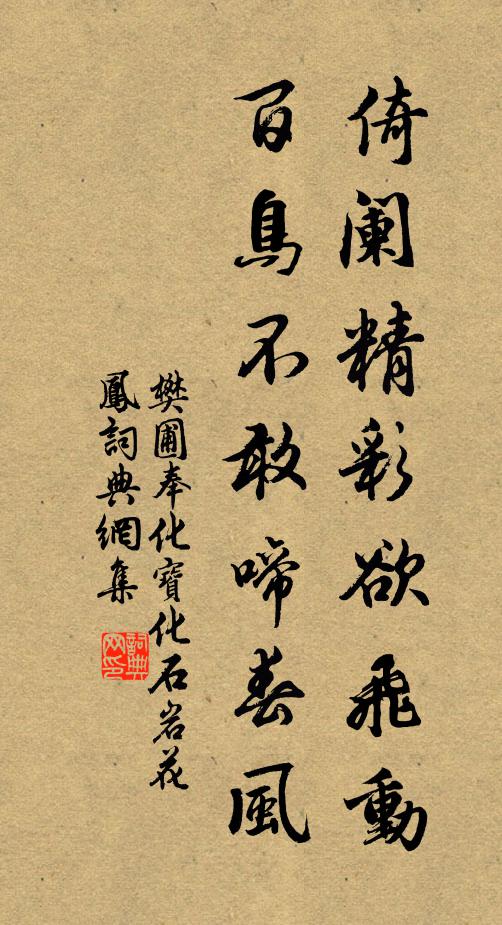 倚阑精彩欲飛動
百鳥不敢啼春風
樊圃奉化寶化石岩花
鳳詞典網集
詞典网印